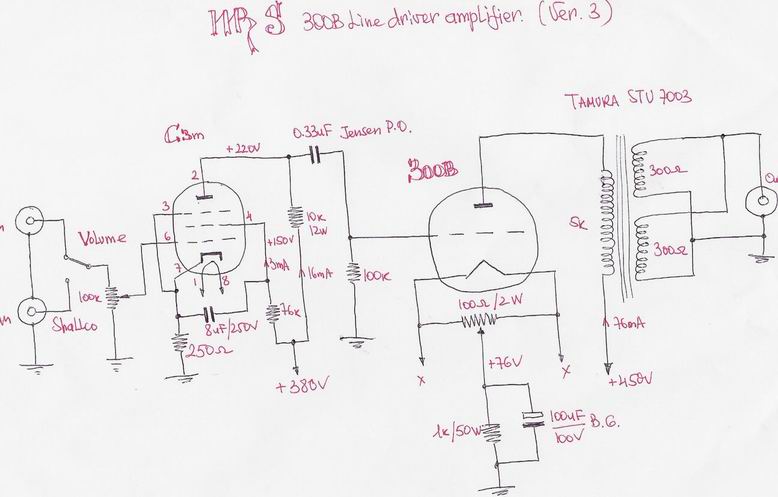 300B Line driver amplifier. (Ver. 3)
TAMURA STU 7003
C3m
+220V
0.33uF Jensen P.O.
300B
2
3
4
6
7
1
8
10k
12W
+150V
3mA
16mA
Volume
100k
Shallco
8uF/250V
250Ω
76k
+380V
100k
100Ω/2W
x
x
+76V
1k/50W
100uF
100V
B.G.
5k
300Ω
300Ω
76mA
+450V